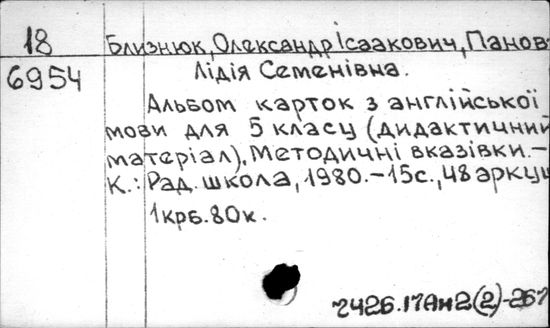 18 Близнюк, Олександр Ісаакович, Панов-
6954 Лідія Семенівна.
Альбом карток з англійської
мови для 5 класу (дидактичний
матеріал). Методичні вказівки.-
К.: Рад. школа, 1980.-15с., 48 аркуш
1крб.80к.
7426.17Ан2(2)-267